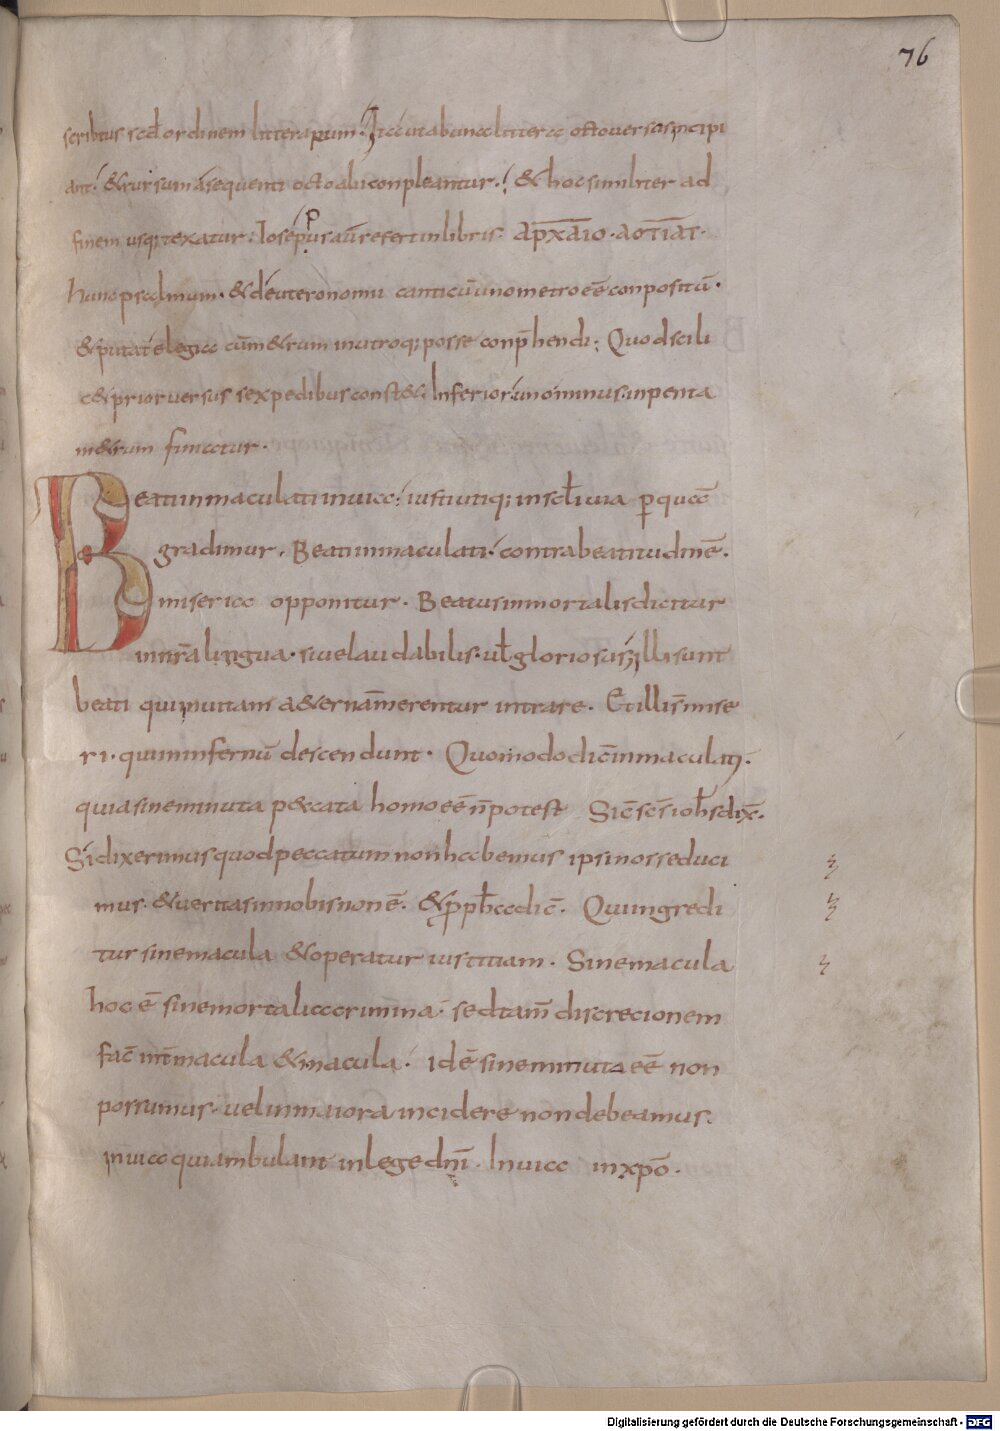 76
scribtus scđ ordinem litterarum. Ita ut ab una littera octo versus incipi
ant. & rursum a sequenti octo alii conpleantur. & hoc similiter ad
finem usq; texatur. Iosepus aūt refert in libris. APXAIO. AOTIAS.
hunc psalmum. & deuteronomii canticū uno metro eē conpositū.
& putat elegiaco metrum in utroq; posse conp̄hendi; Quod scili
c& prior versus sex pedibus const&. Inferior uno minus in penta
m&rum finiatur.
Beati inmaculati in uia. iusti utiq; in scł̄i uia per quā
gradimur. Beati inmaculati. contra beatitudinē.
miseria opponitur. Beatus inmortalis dicitur
in nr̄a lingua. siue laudabilis. uł gloriosus; illi sunt
beati qui in uitam a&ernā merentur intrare. Et illi s̄ mise
ri. qui in infernū descendunt. Quomodo dic̄ inmaculati.
quia sine minuta peccata homo eē n̄ potest Sic̄ sc̄s ioħs dix̄.
Si dixerimus quod peccatum non habemus ipsi nos seduci
mus. & veritas in nobis non ē. & p̱p̱ħa dic̄. Qui ingredi
tur sine macula & operatur iustitiam. Sine macula
hoc ē sine mortalia crimina. sed tam̄ discrecionem
fac̄ int̄ macula & macula. id ē sine minuta eē non
possumus. uel in maiora incidere non debeamus.
in uia qui ambulant in lege dn̄i. In uia in xp̄o.
Digitalisierung gefördert durch die Deutsche Forschungsgemeinschaft - DFG